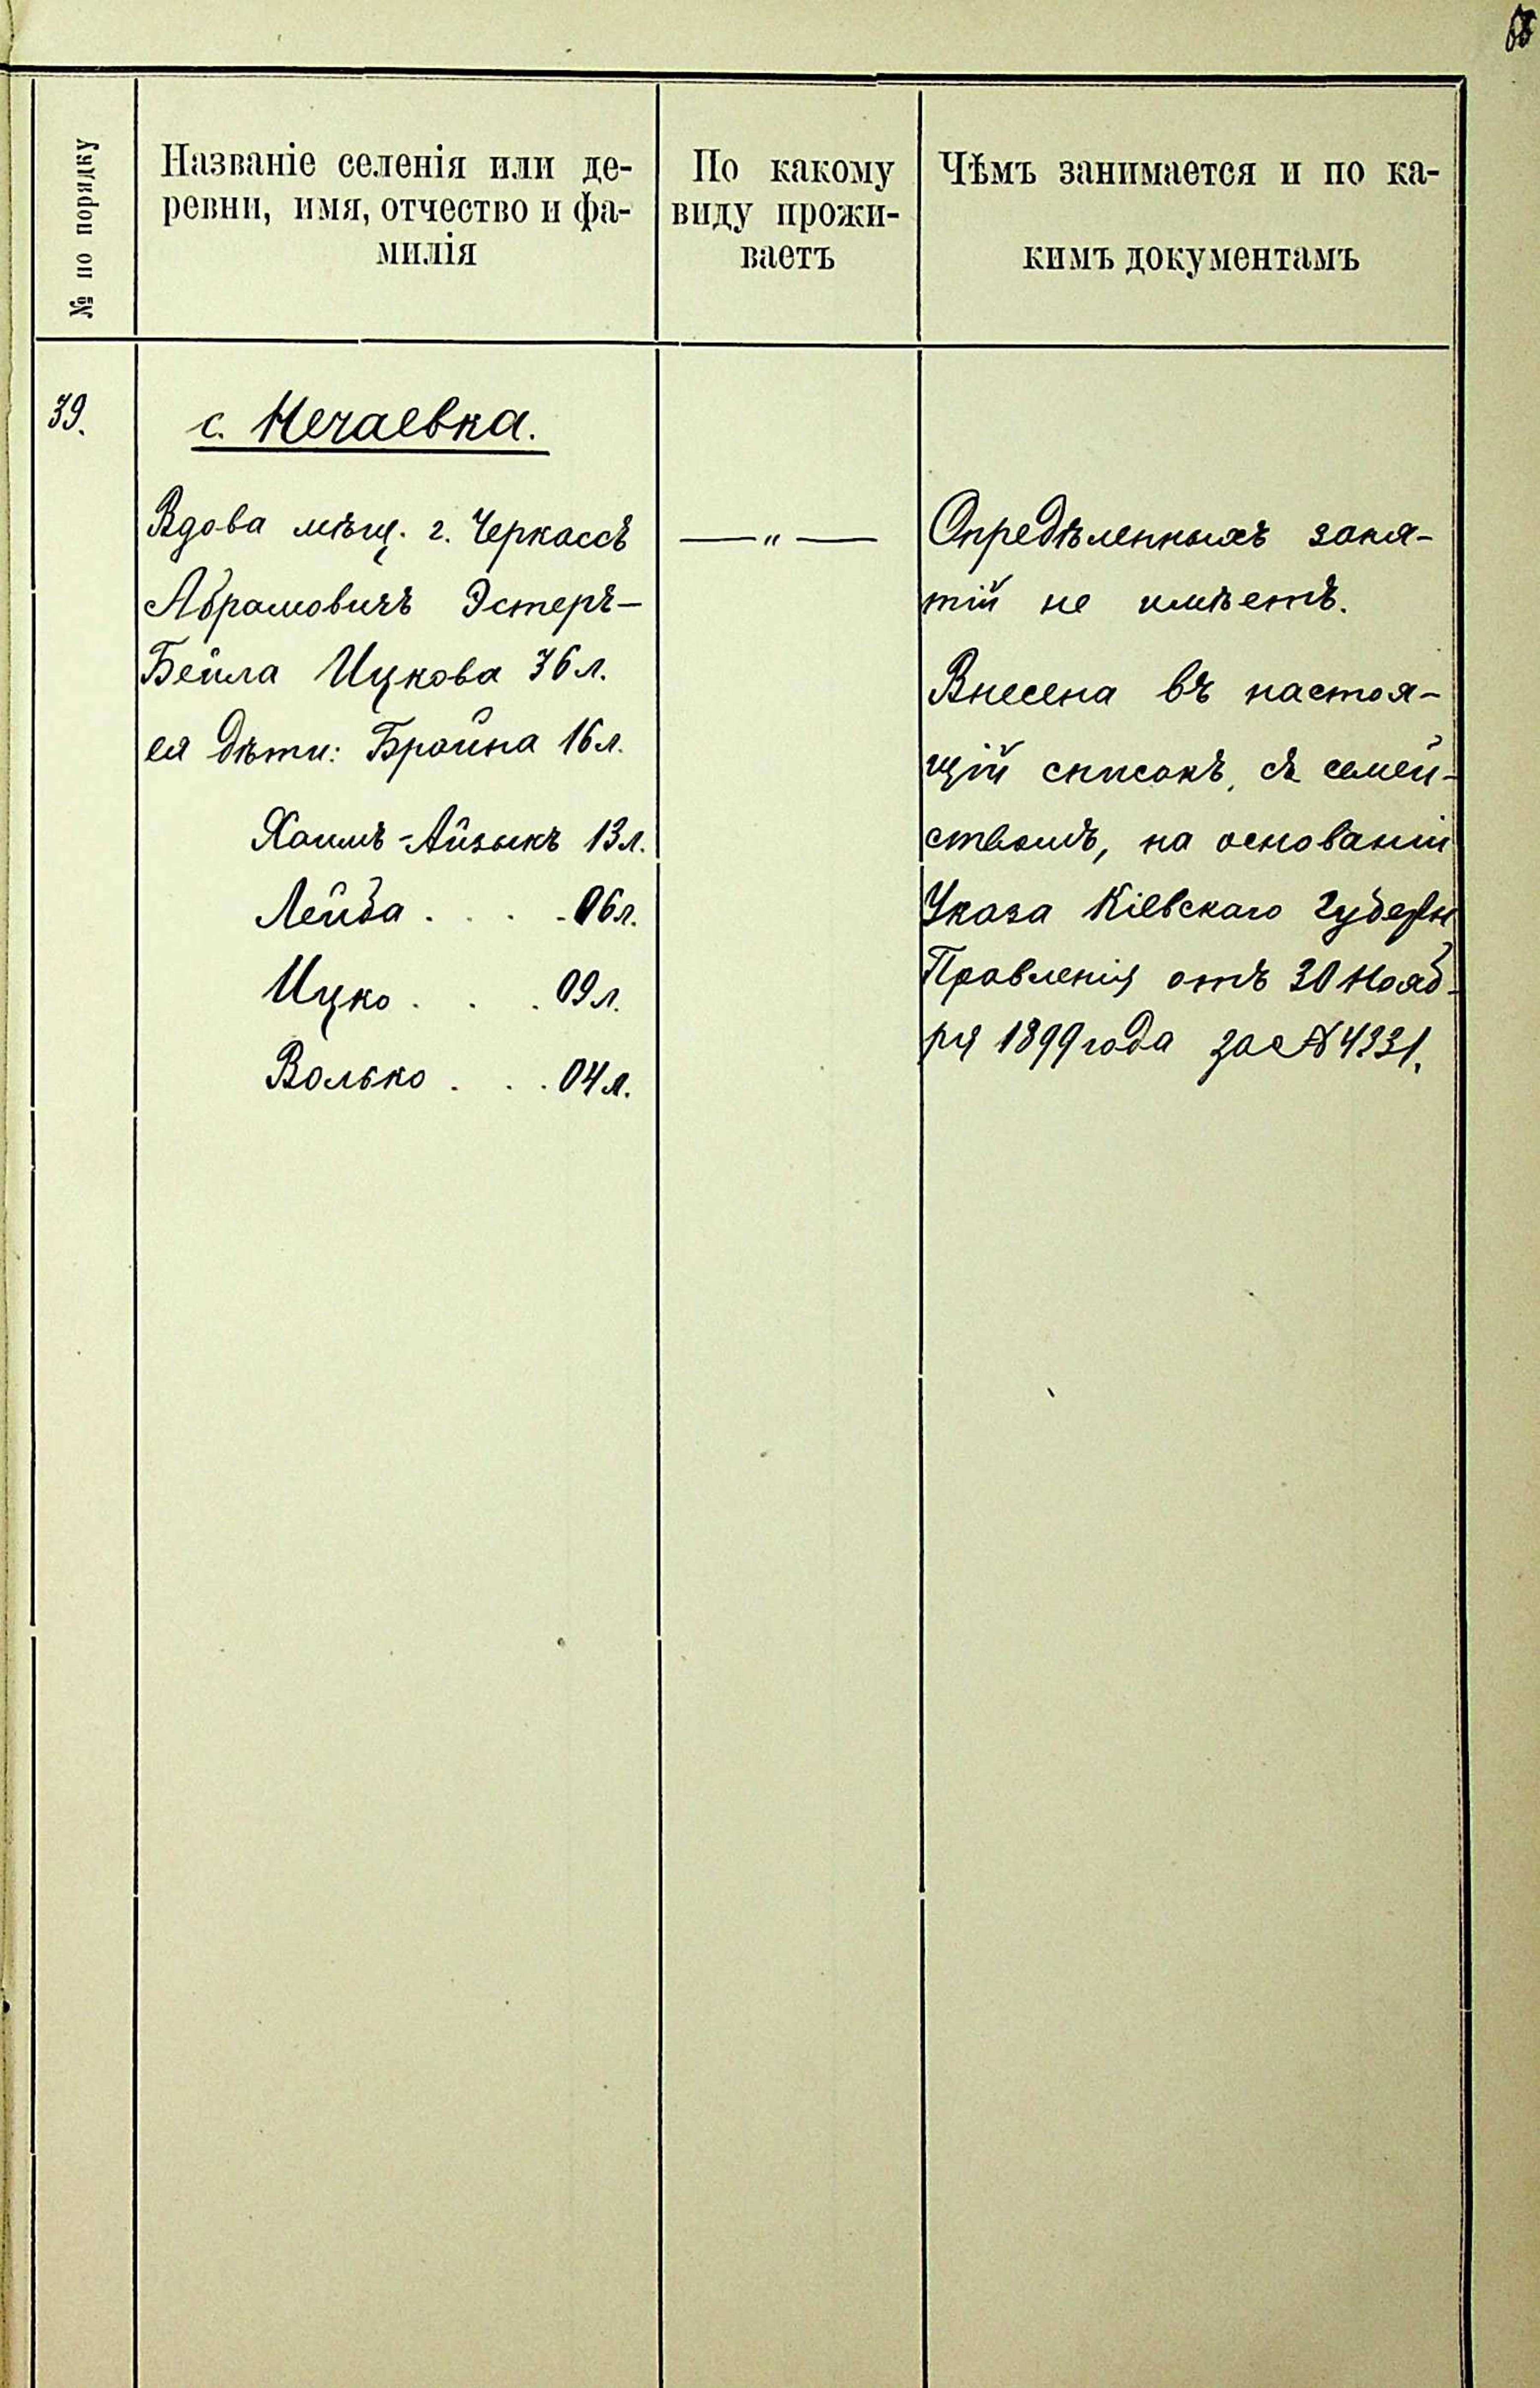 № по порядку
Названіе селенія или де-
ревни, имя, отчество и фа-
милія
По какому
виду прожи-
ваетъ
Чѣмъ занимается и по ка-
кимъ документамъ
39.
с. Нечаевка.
Вдова мѣщ. г. Черкассъ
Абрамовичъ Эстеръ-
Бейла Ицкова 36 л.
ея дѣти: Брайна 16 л.
Хаимъ-Айзыкъ 13 л.
Лейба . . . - 06 л.
Ицко . . . 09 л.
Волько . . . 04 л.
— " —
Опредѣленныхъ заня-
тій не имѣетъ.
Внесена въ настоя-
щій списокъ, съ семей-
ствомъ, на основаніи
Указа Кіевскаго Губерн
Правленія отъ 30 Нояб-
ря 1899 года за № 4331.